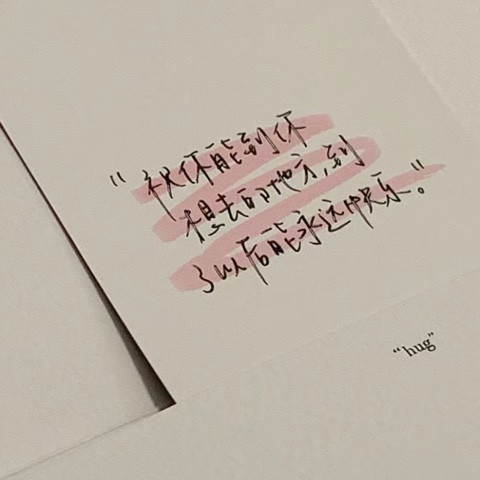 “祝你能到你
想去的地方,到
了以后能永远快乐”。
“hug”